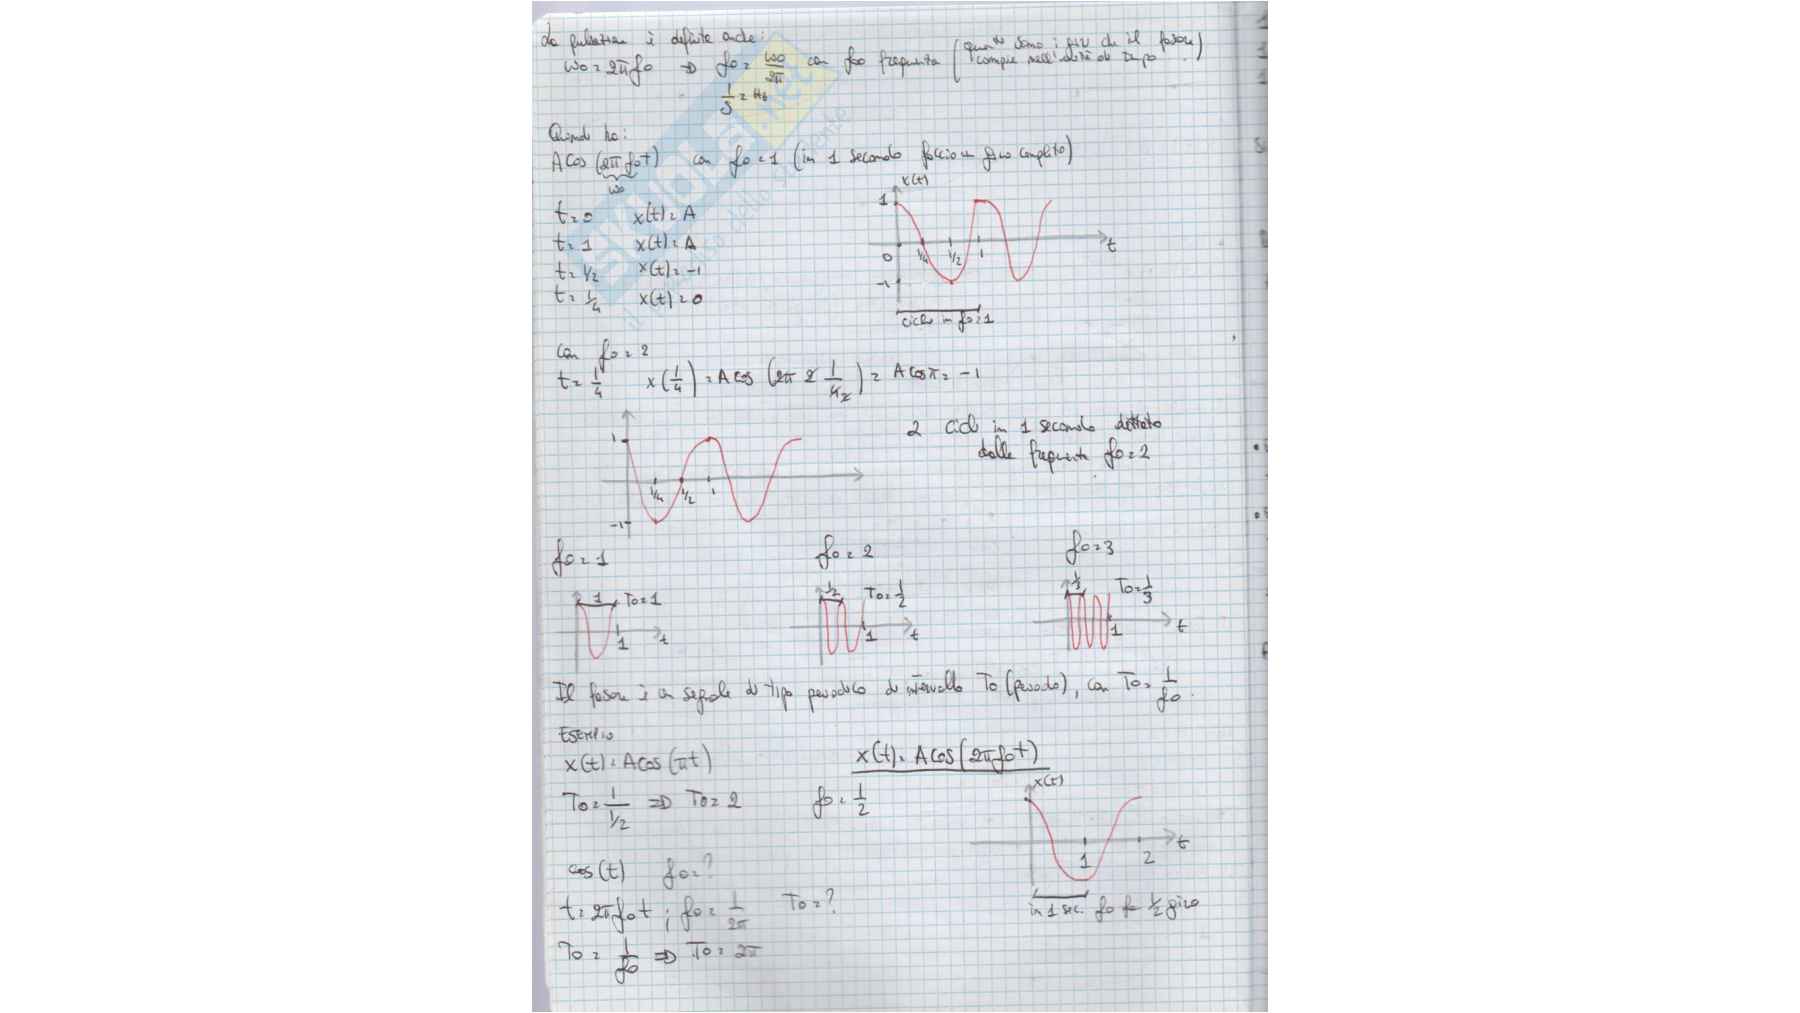 La pulsazione è definita anche:
ω0 = 2πf0 => f0 = ω0/2π con f0 frequenza (quanti sono i giri che il fasore compie nell'unità di tempo)
1/s = Hz
Quindi ho:
A cos (2πf0t) con f0 = 1 (in 1 secondo faccio un giro completo)
ω0
t = 0 x(t) = A
t = 1 x(t) = A
t = 1/2 x(t) = -1
t = 1/4 x(t) = 0
x(t)
1
0 1/4 1/2 1 t
-1
ciclo in f0 = 1
con f0 = 2
t = 1/4 x(1/4) = A cos (2π 2 1/4 2) = A cos π = -1
2 cicli in 1 secondo dettato
dalla frequenza f0 = 2
1
1/4 1/2 1
-1
f0 = 1 f0 = 2 f0 = 3
1 T0 = 1 1/2 T0 = 1/2 1/3 T0 = 1/3
1 t 1 t 1 t
Il fasore è un segnale di tipo periodico di intervallo T0 (periodo), con T0 = 1/f0.
Esempio
x(t) = A cos (πt) x(t) = A cos (2πf0t)
T0 = 1/1/2 => T0 = 2 f0 = 1/2
x(t)
1 2 t
in 1 sec. f0 fa 1/2 giro
cos(t) f0 = ?
t = 2πf0t ; f0 = 1/2π T0 = ?
T0 = 1/f0 => T0 = 2π
SKUOLA.net
il paradiso dello studente